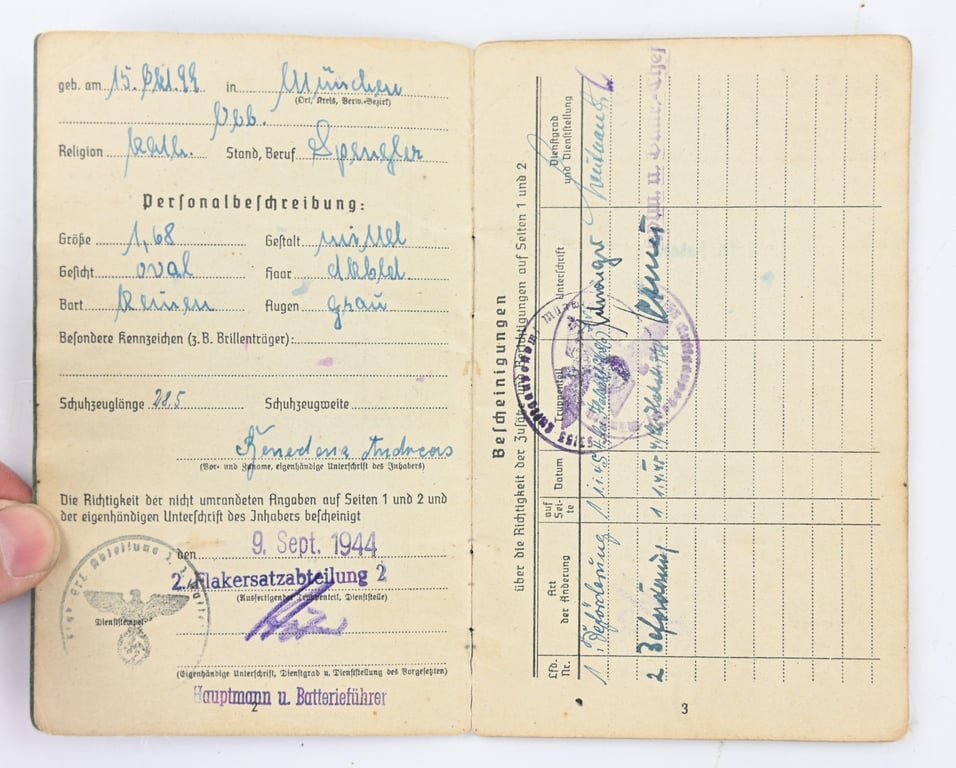 geb. am 15. Okt. 99 in München
(Ort, Kreis, Verw.-Bezirk)
Obb.
Religion kath. Stand, Beruf Spengler
Personalbeschreibung:
Größe 1,68 Gestalt mittel
Gesicht oval Haar dkbld.
Bart keinen Augen grau
Besondere Kennzeichen (z.B. Brillenträger):
Schuhzeuglänge 28.5 Schuhzeugweite
Andreas
(Vor- und Zuname, eigenhändige Unterschrift des Inhabers)
Die Richtigkeit der nicht umrandeten Angaben auf Seiten 1 und 2 und
der eigenhändigen Unterschrift des Inhabers bescheinigt
den 9. Sept. 1944
2. Flakersatzabteilung 2
(Ausfertigender Truppenteil, Dienststelle)
Dienststempel
(Eigenhändige Unterschrift, Dienstgrad u. Dienststellung des Vorgesetzten)
Hauptmann u. Batterieführer
2
Bescheinigungen
über die Richtigkeit der Zusätze und Berichtigungen auf Seiten 1 und 2
Lfd. Nr. Art der Änderung auf Seite Datum Truppenteil Unterschrift Dienstgrad und Dienststellung
1 Beförderung 1 Leutnant
2 Beförderung 1 1.4.45
3